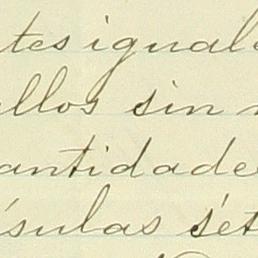 tes iguale
ellos sin
antidade
ésulas sét